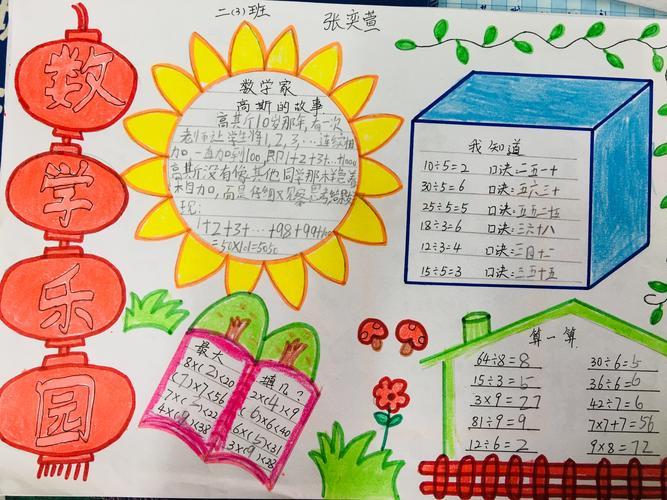 二(3)班
张奕萱
数学乐园
数学家
高斯的故事
高斯10岁那年,有一次
老师让学生将1,2,3,…连续相
加一直加到100,即1+2+3+…+100
高斯没有像其他同学那样急着
相加,而是仔细观察、思考
现:
1+2+3+…+98+99+100
=50×101=5050
我知道
10÷5=2 口诀:二五一十
30÷5=6 口诀:五六三十
25÷5=5 口诀:五五二十五
18÷3=6 口诀:三六十八
12÷3=4 口诀:三四十二
15÷5=3 口诀:三五十五
最大
8×(2)<20
(7)×7<56
7×(3)<22
4×(9)<38
填几?
2×(4)<9
(6)×6<40
6×(5)<31
3×(9)<28
算一算
64÷8=8
15÷3=5
3×9=27
81÷9=9
12÷6=2
30÷6=5
36÷6=6
42÷7=6
7×7+7=56
9×8=72